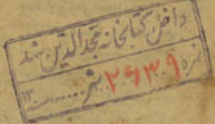 داخل کتابخانه مجدالدین شد
نمره ۲۶۳۹